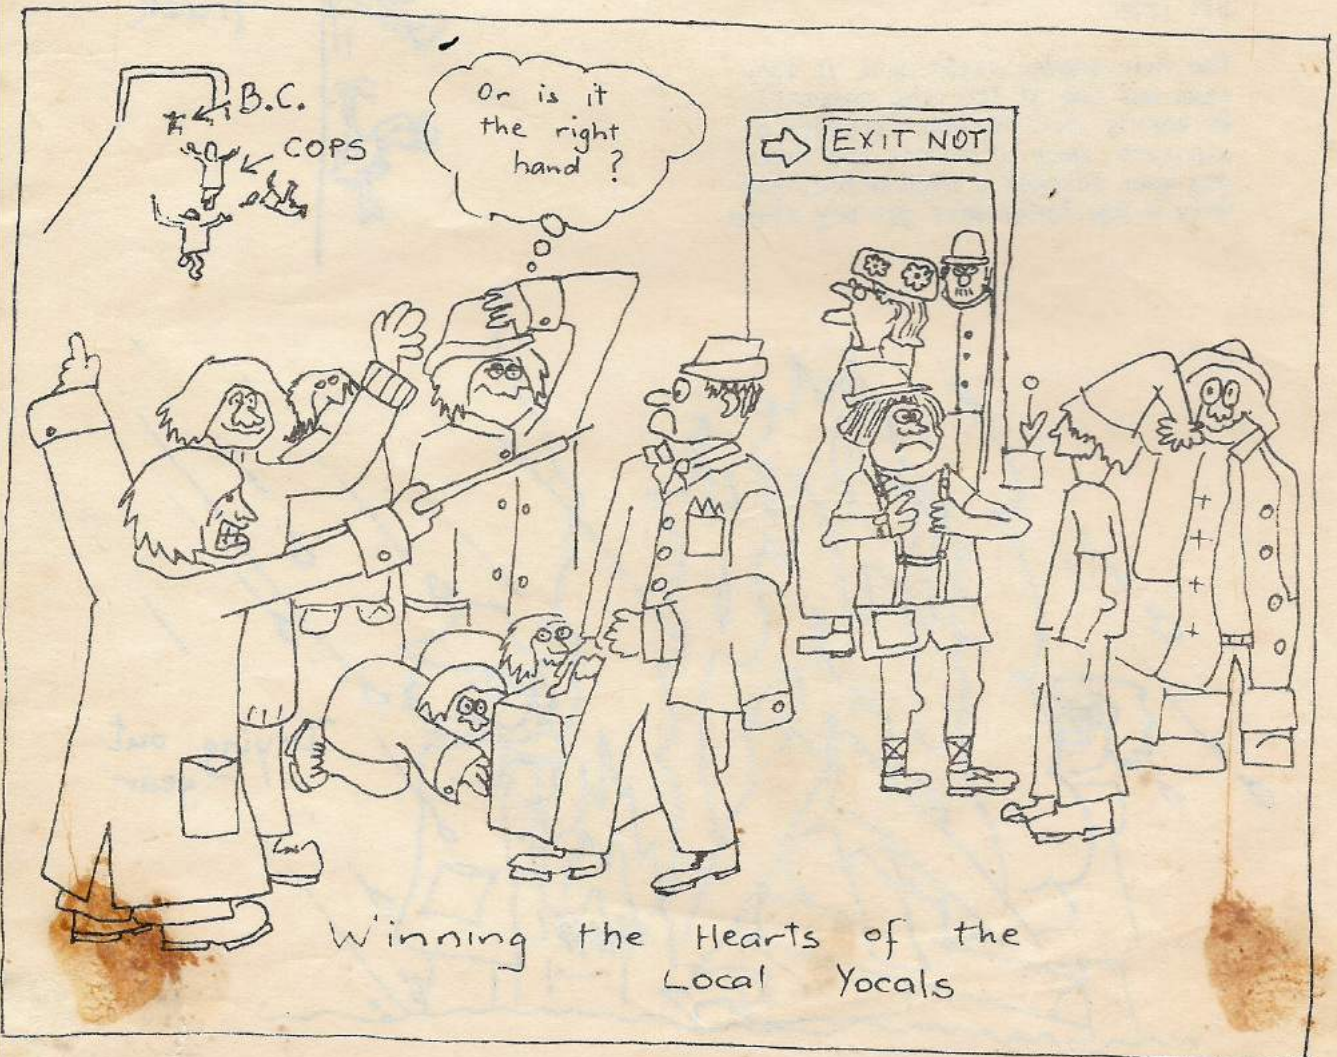 B.C.
COPS
Or is it
the right
hand ?
EXIT NOT
Winning the Hearts of the
Local Yocals